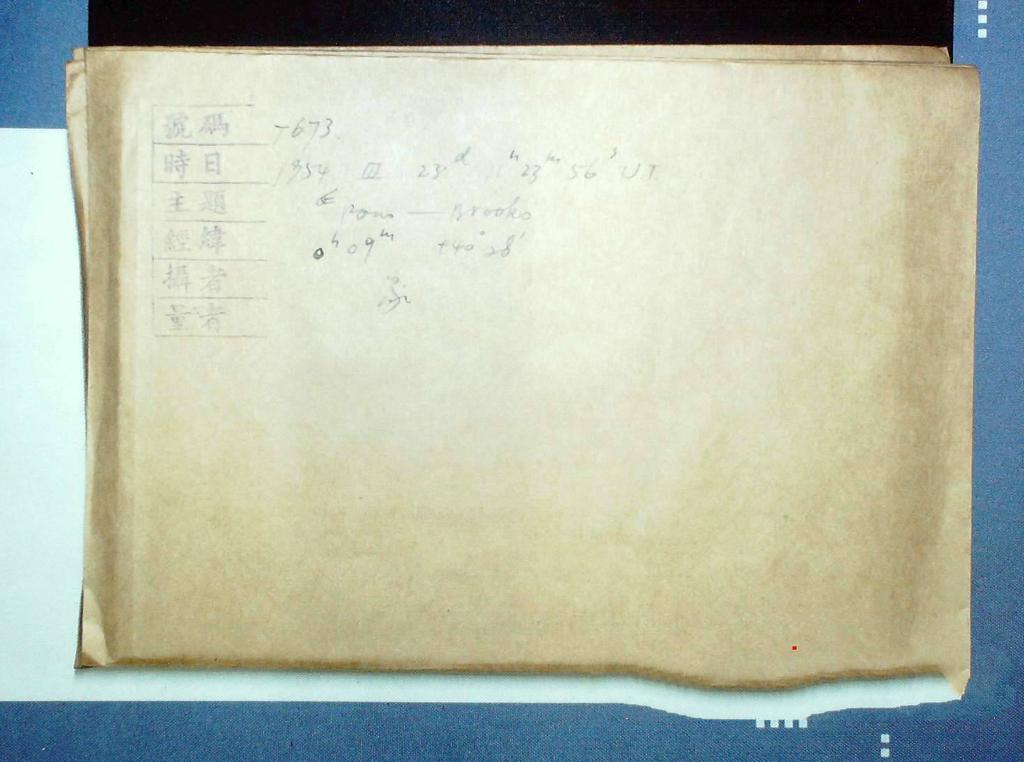 號碼 -673
時日 1954 III 23ᵈ 11ʰ 23ᵐ 56ˢ UT
主題 Pons — Brooks
經緯 0ʰ 09ᵐ +40° 28′
攝者
量者